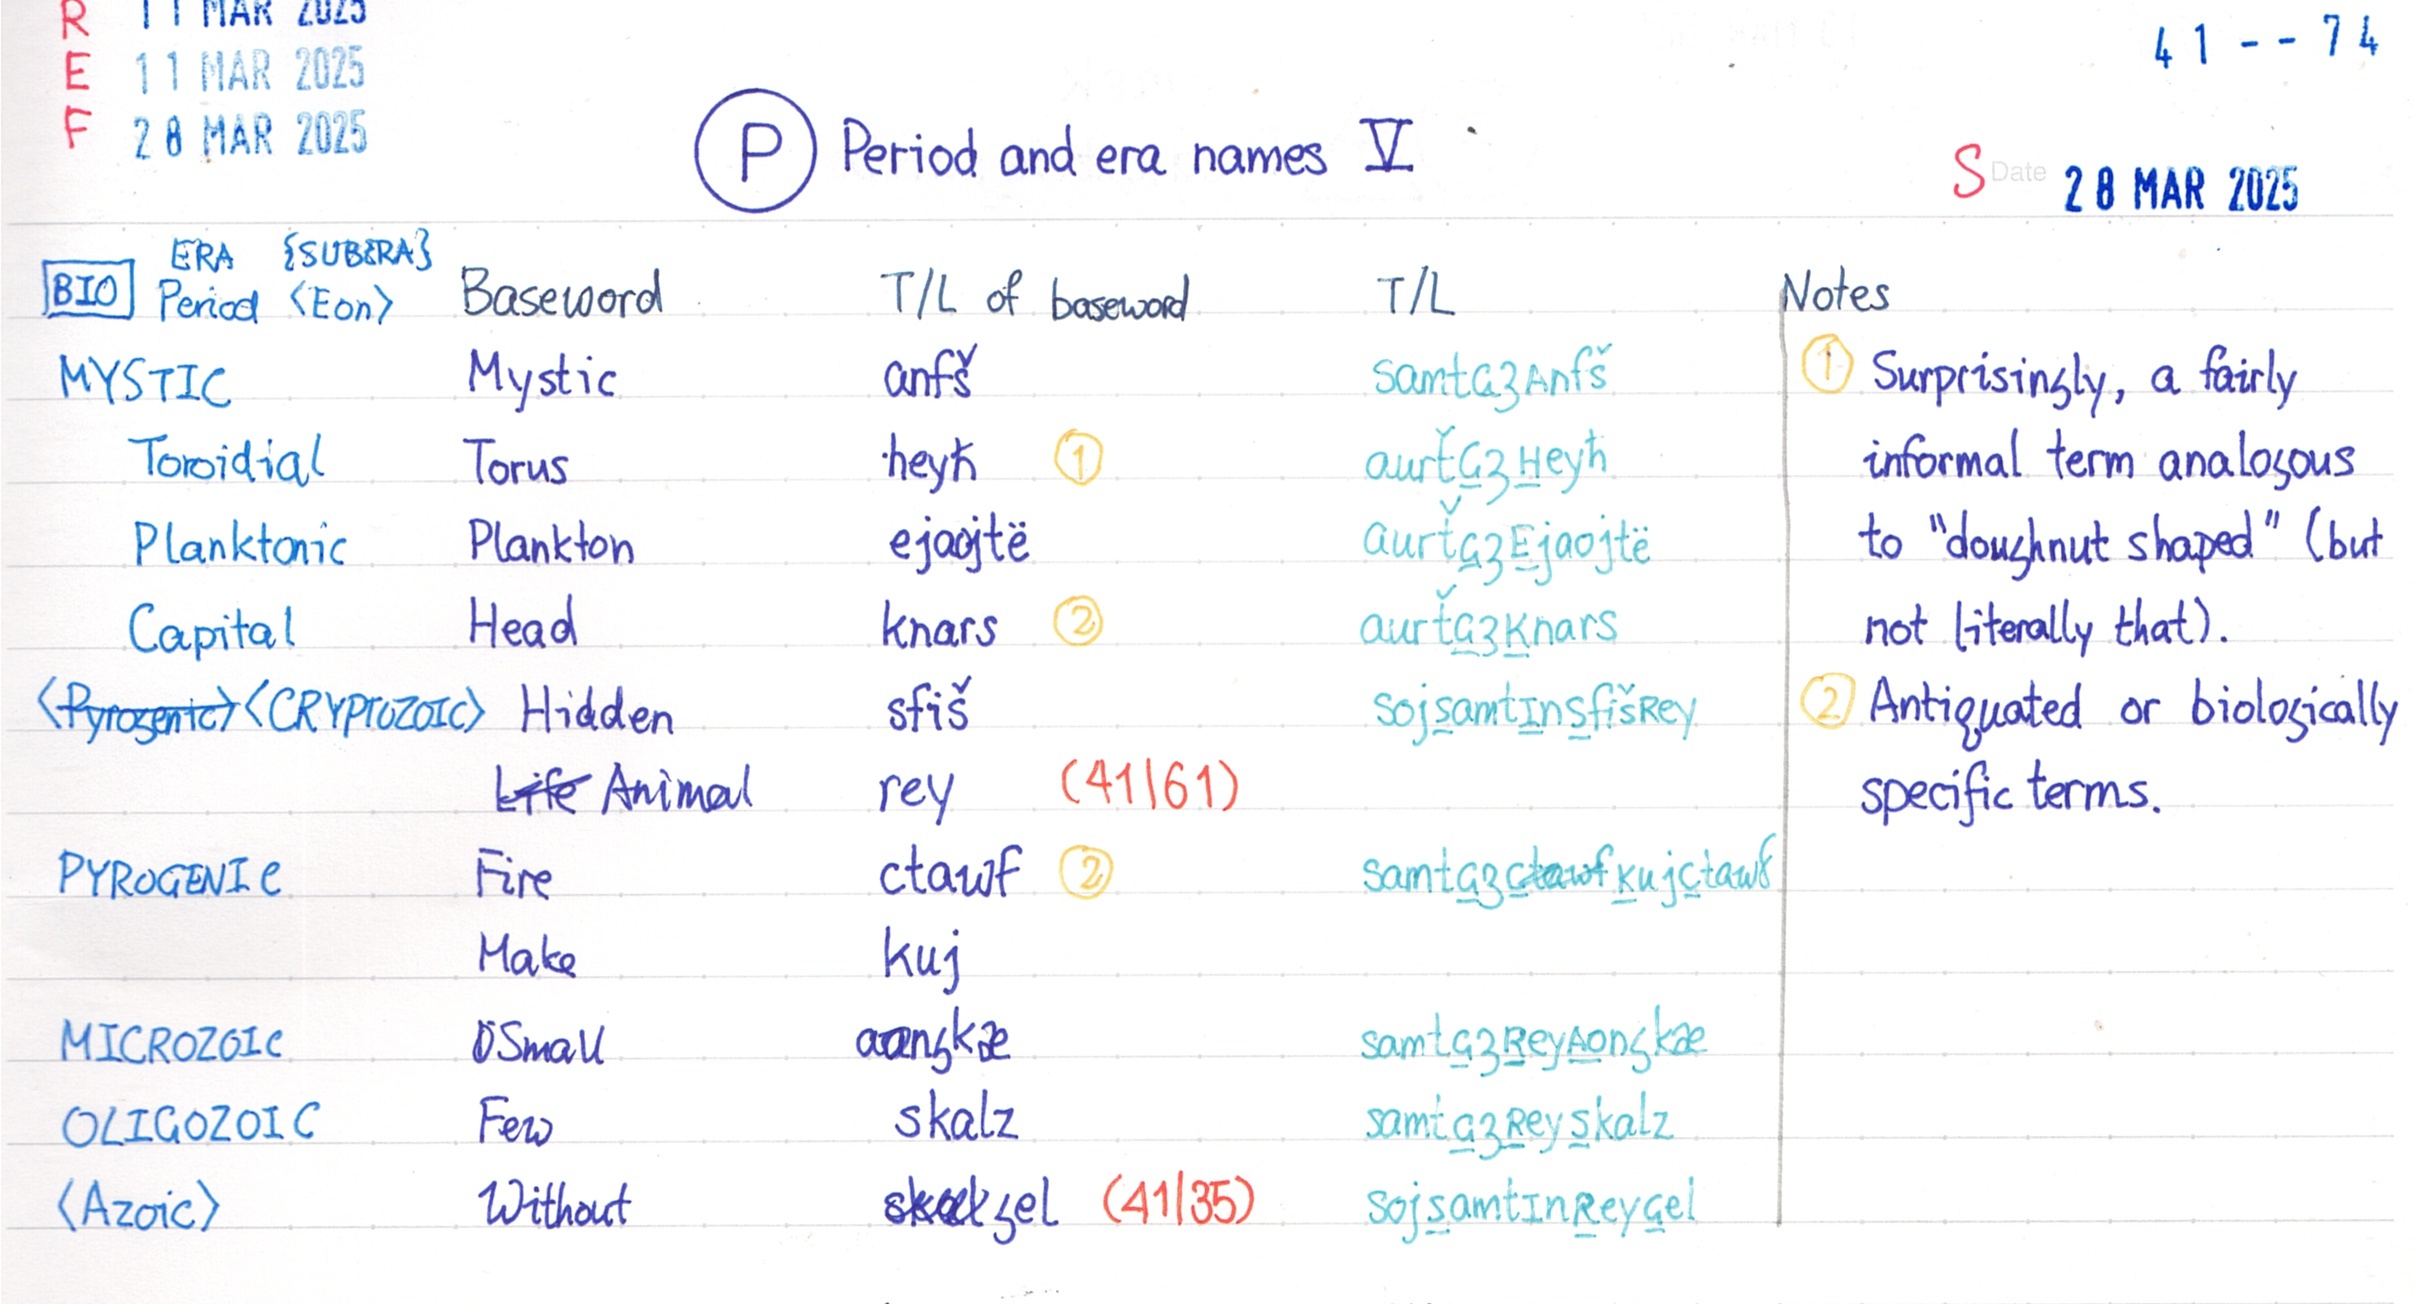 R 11 MAR 2025
E 11 MAR 2025
F 28 MAR 2025
41--74
P Period and era names V
S Date 28 MAR 2025
BIO ERA {SUBERA} Period <Eon> Baseword T/L of baseword T/L Notes
MYSTIC Mystic anfš samtGʒAnfš ① Surprisingly, a fairly
Toroidial Torus heyħ ① aurť̌GʒHeyħ informal term analogous
Planktonic Plankton ejaojtë aurť̌GʒEjaojtë to "doughnut shaped" (but
Capital Head knars ② aurť̌GʒKnars not literally that).
<Pyrogenic> <CRYPTOZOIC> Hidden sfiš sojsamtInsfišRey ② Antiquated or biologically
Life Animal rey (41|61) specific terms.
PYROGENIC Fire ctawf ② samtGʒCtawfKujCtawf
Make kuj
MICROZOIC Small aongkæ samtGʒReyAongkæ
OLIGOZOIC Few skalz samtGʒReySkalz
<Azoic> Without gel (41|35) sojsamtInReyGel